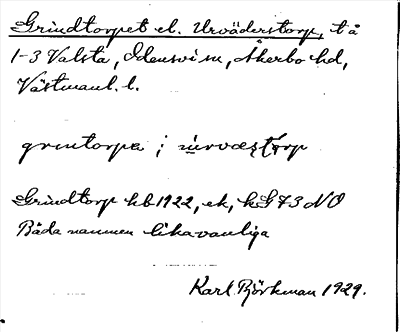 Grindtorpet el. Urväderstorp, t å
1-3 Valsta, Odensvi sn, Åkerbo hd,
Västmanl. l.
grintorpa ; ùrvæstórp
Grindtorp hb 1922, ek, kG 73 NO
Båda namnen lika vanliga
Karl Björkman 1929.